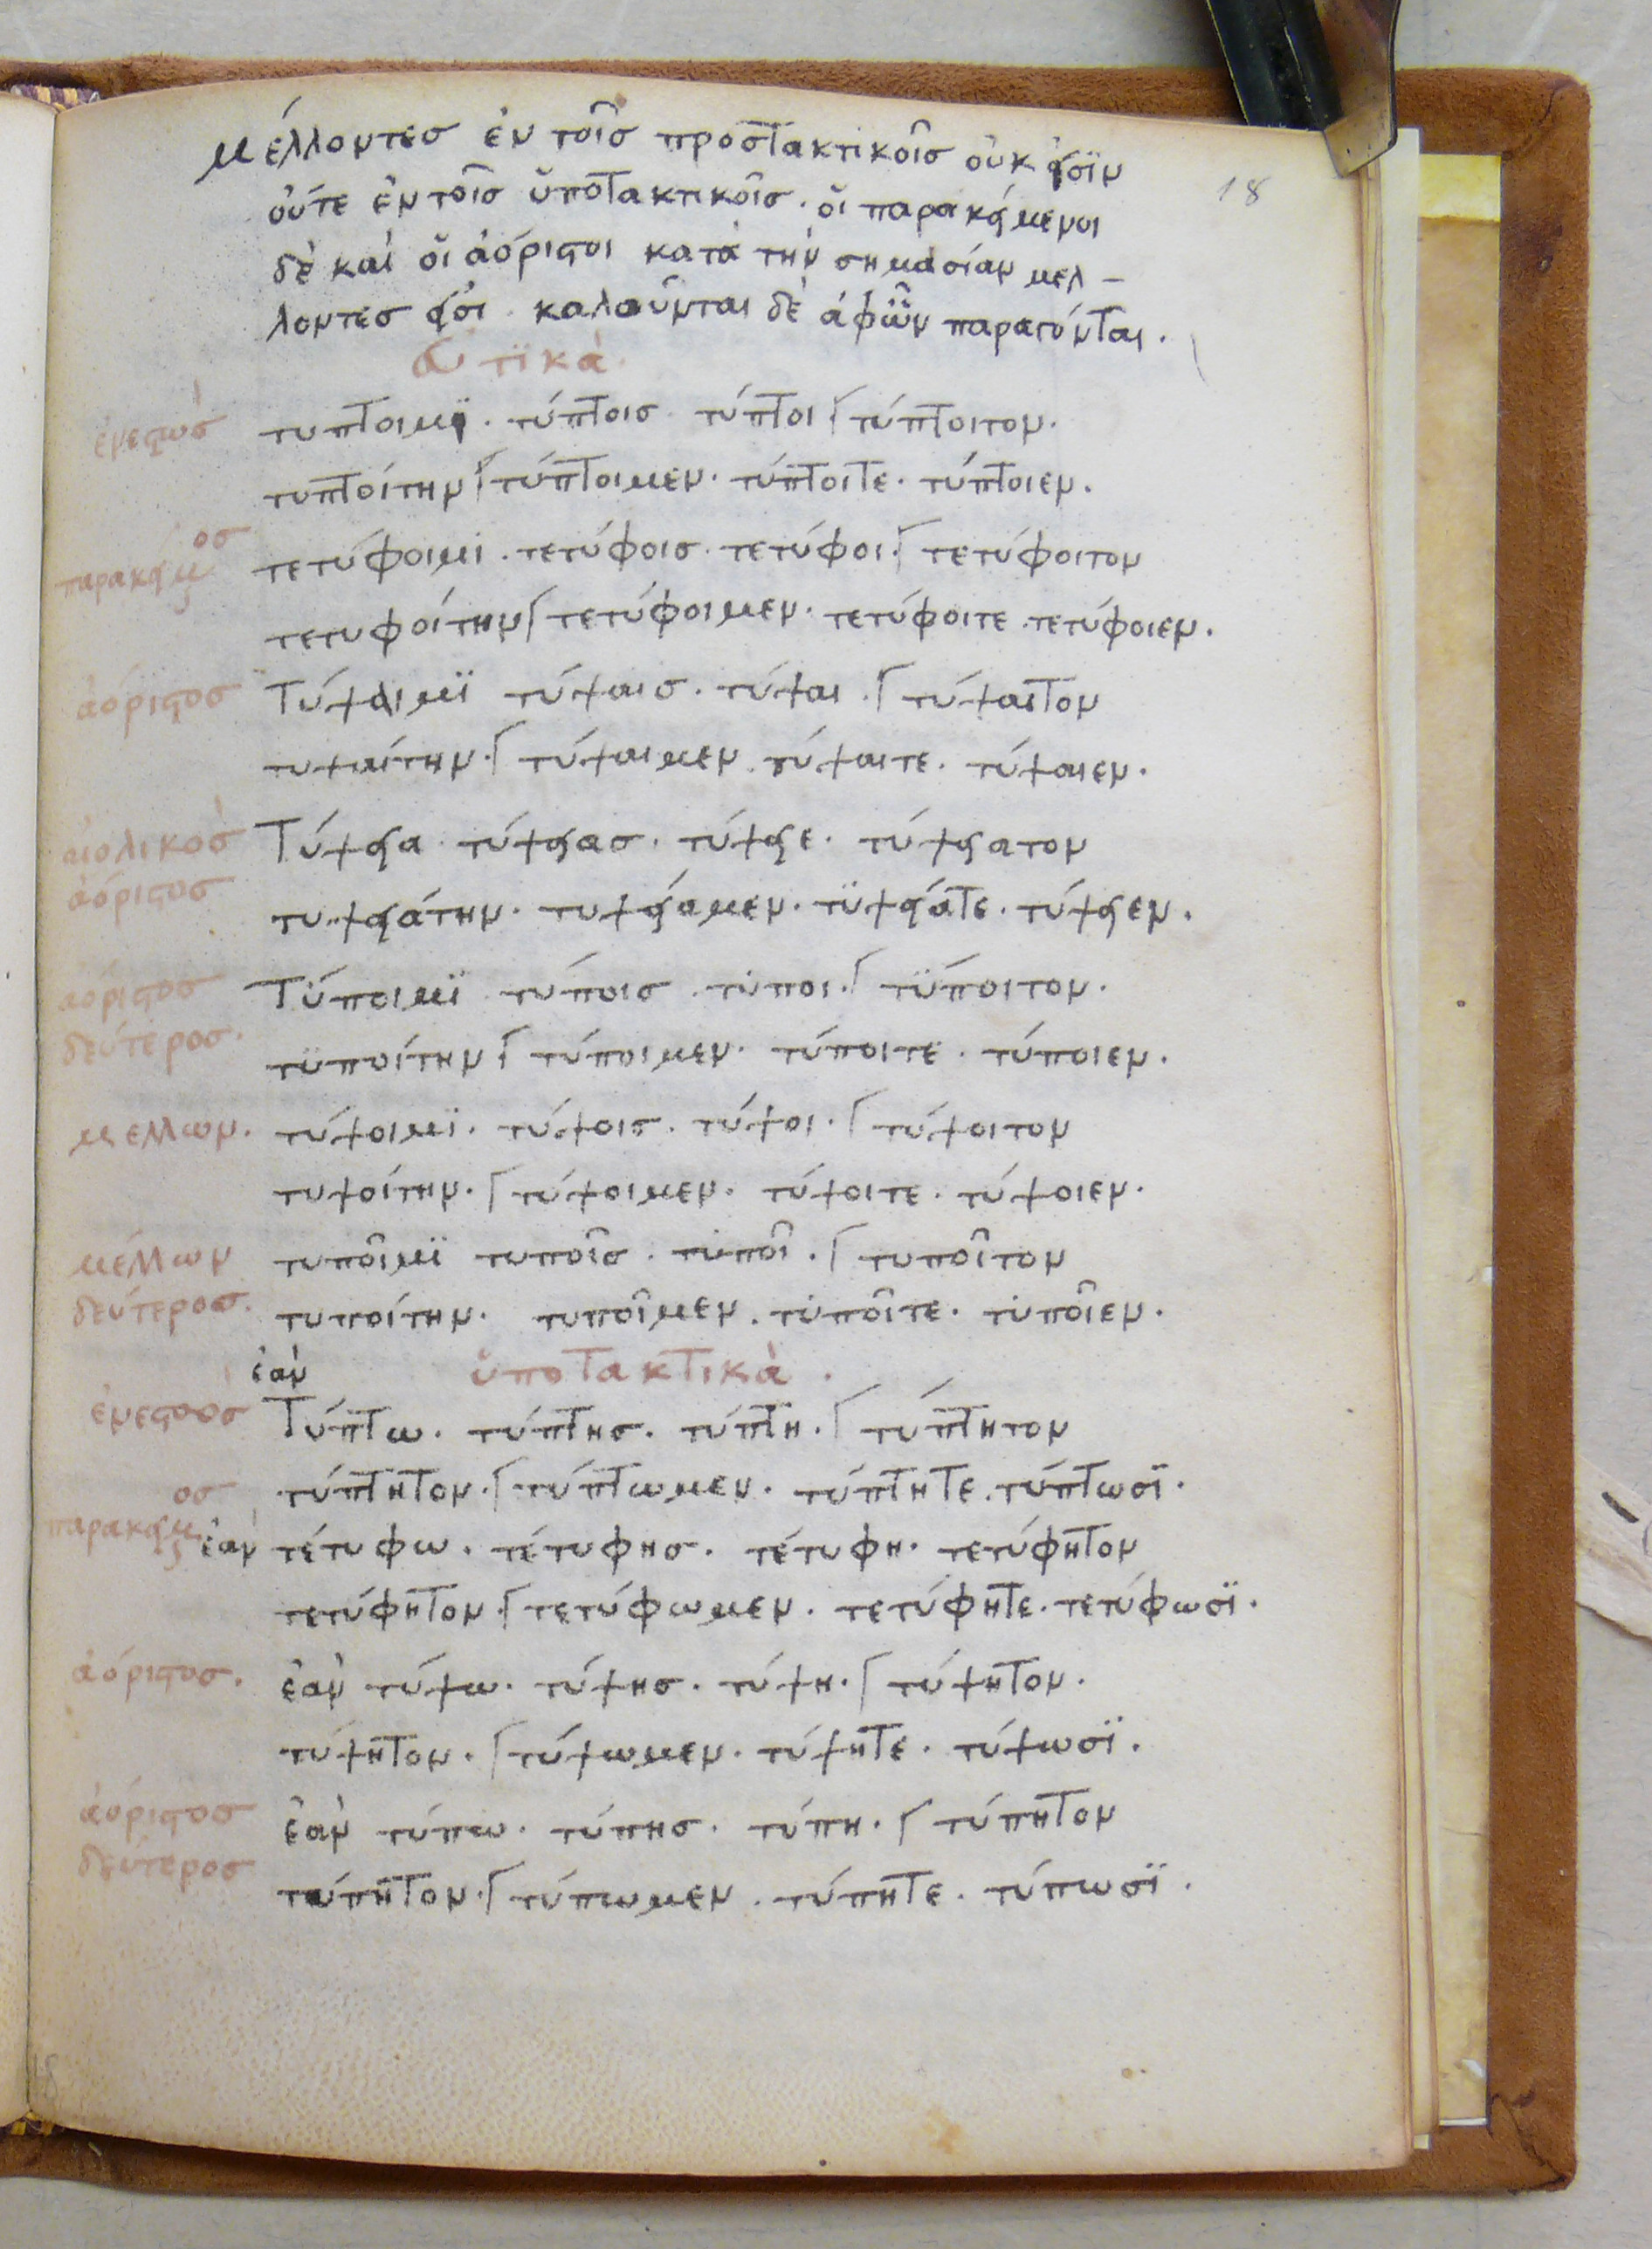 18
μέλλοντες ἐν τοῖς προστακτικοῖς οὐκ εἰσϊν
οὔτε ἐν τοῖς ὑποτακτικοῖς · οἱ παρακείμενοι
δὲ καὶ οἱ ἀόριστοι κατὰ τὴν σημασίαν μελ-
λοντες εἰσι · καλοῦνται δὲ ἀφ ὧν παράγονται ·
ευτϊκὰ ·
ἐνεστὼς τυπτοιμϊ · τύπτοις · τύπτοι · τύπτοιτον ·
τυπτοίτην · τύπτοιμεν · τύπτοιτε · τύπτοιεν ·
παρακείμος τετύφοιμι · τετύφοις · τετύφοι · τετύφοιτον
τετυφοίτην · τετύφοιμεν · τετύφοιτε · τετύφοιεν ·
ἀόριστος Τύψαιμϊ τύψαις · τύψαι · τύψαιτον
τυψαίτην · τύψαιμεν · τύψαιτε · τύψαιεν ·
αἰολικὸς Τύψεια · τύψειας · τύψειε · τύψειατον
ἀόριστος τυψειάτην · τυψείαμεν · τϋψείατε · τύψειεν ·
ἀόριστος Τύποιμϊ · τύποις · τύποι · τϋποιτον ·
δεύτερος · τϋποίτην · τύποιμεν · τύποιτε · τύποιεν ·
μελλων · τύψοιμϊ · τύψοις · τύψοι · τύψοιτον
τυψοίτην · τύψοιμεν · τύψοιτε · τύψοιεν ·
μέλλων τυποῖμϊ τυποῖς · τυποῖ · τυποῖτον
δεύτερος · τυποίτην · τυποῖμεν · τυποῖτε · τυποῖεν ·
ἐὰν ὑποτακτικὰ ·
ἐνεστὼς Τύπτω · τύπτης · τύπτη · τύπτητον
τύπτητον · τύπτωμεν · τύπτητε · τύπτωσϊ ·
παρακείμος ἐὰν τέτυφω · τέτυφης · τέτυφη · τετύφητον
τετύφητον · τετύφωμεν · τετύφητε · τετύφωσϊ ·
ἀόριστος · ἐὰν τύψω · τύψης · τύψη · τύψητον ·
τύψητον · τύψωμεν · τύψητε · τύψωσϊ ·
ἀόριστος ἐὰν τύπω · τύπης · τύπη · τύπητον
δεύτερος τύπητον · τύπωμεν · τύπητε · τύπωσϊ ·